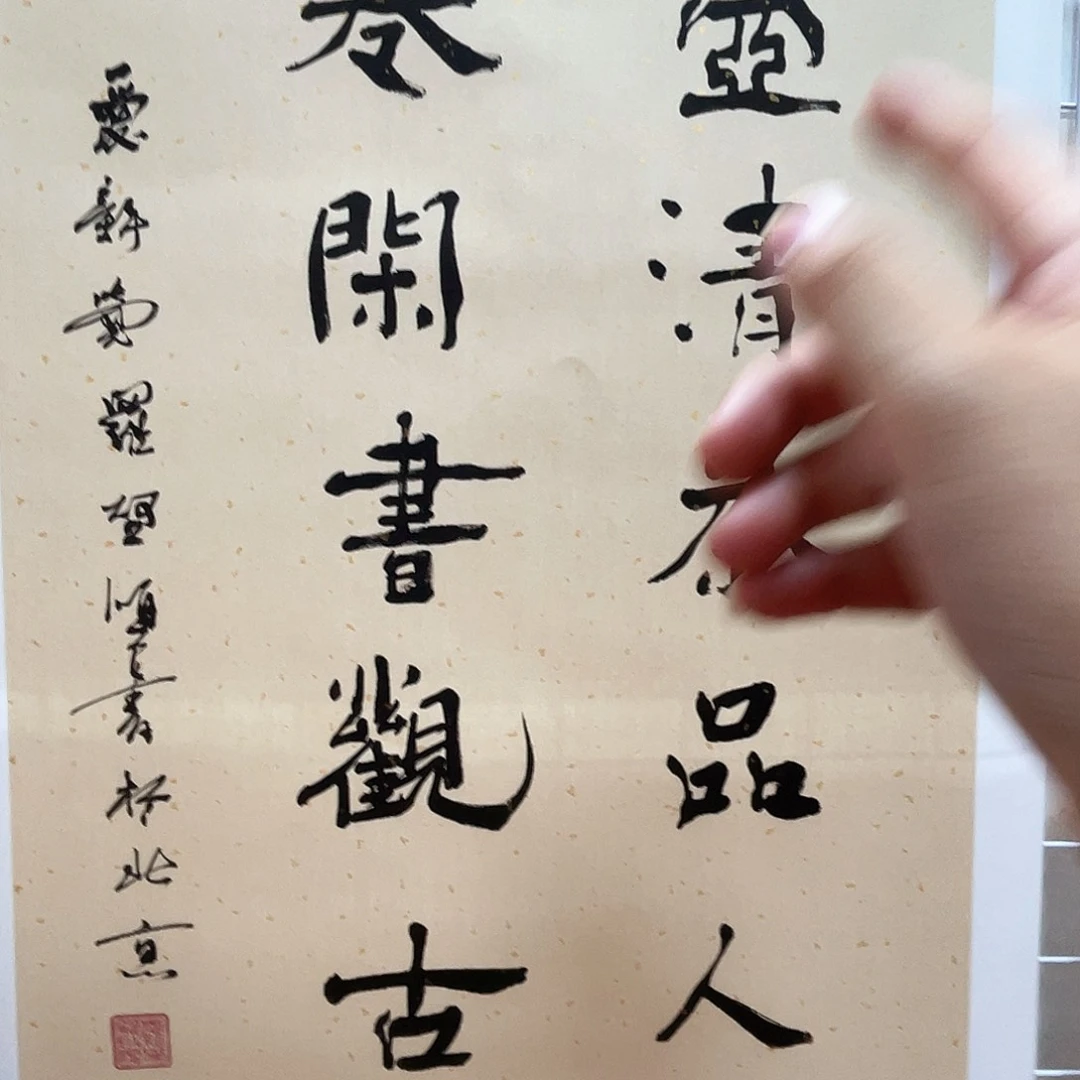 壺清品人
卷閑書觀古
愛新覺羅順書於北京